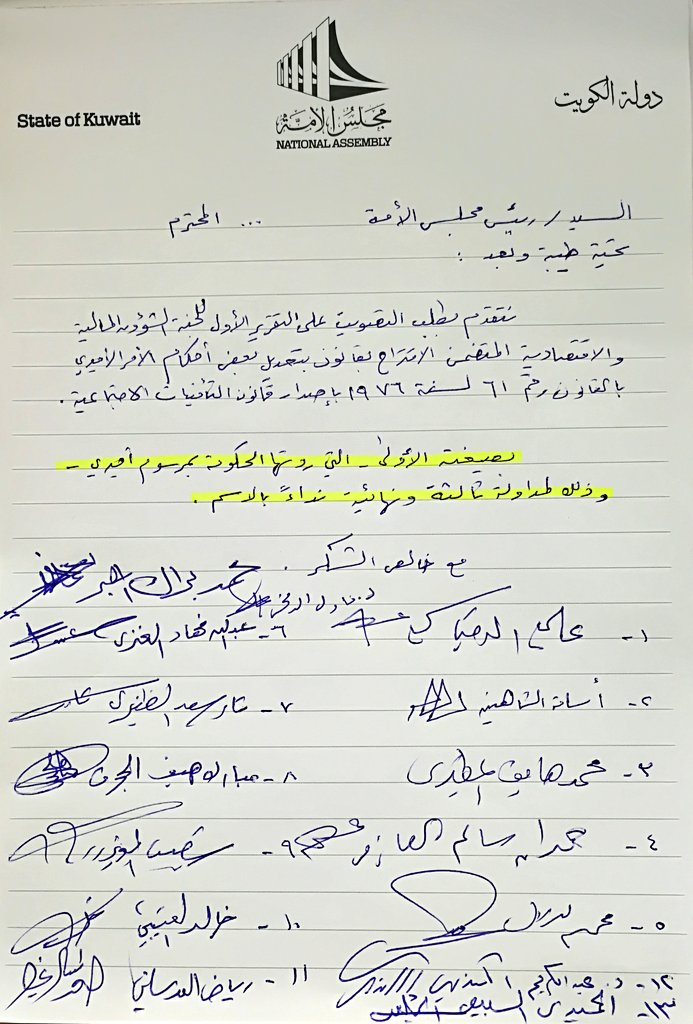 State of Kuwait
دولة الكويت
مجلس الأمة
NATIONAL ASSEMBLY
السيد / رئيس مجلس الأمة ... المحترم
تحية طيبة وبعد :
نتقدم بطلب التصويت على التقرير الأول للجنة الشؤون المالية
والاقتصادية المتضمن الاقتراح بقانون بتعديل بعض أحكام الأمر الأميري
بالقانون رقم ٦١ لسنة ١٩٧٦ بإصدار قانون التأمينات الاجتماعية .
بصيغته الأولى - التي ردتها الحكومة بمرسوم أميري -
وذلك لمداولة ثالثة ونهائية نداءً بالاسم .
مع خالص الشكر .
د. عادل الدمخي
١- علي الدقباسي
٦- عبدالله فهاد العنزي
٢- أسامة الشاهين
٧- ثامر سعد الظفيري
٣- محمد هايف المطيري
٨- مبارك هيف الحجرف
٤- حمدان سالم العازمي
٩- شعيب المويزري
٥-
١٠- خالد العتيبي
١١- رياض العدساني
١٢- د. عبدالكريم الكندري
١٣- الحميدي السبيعي